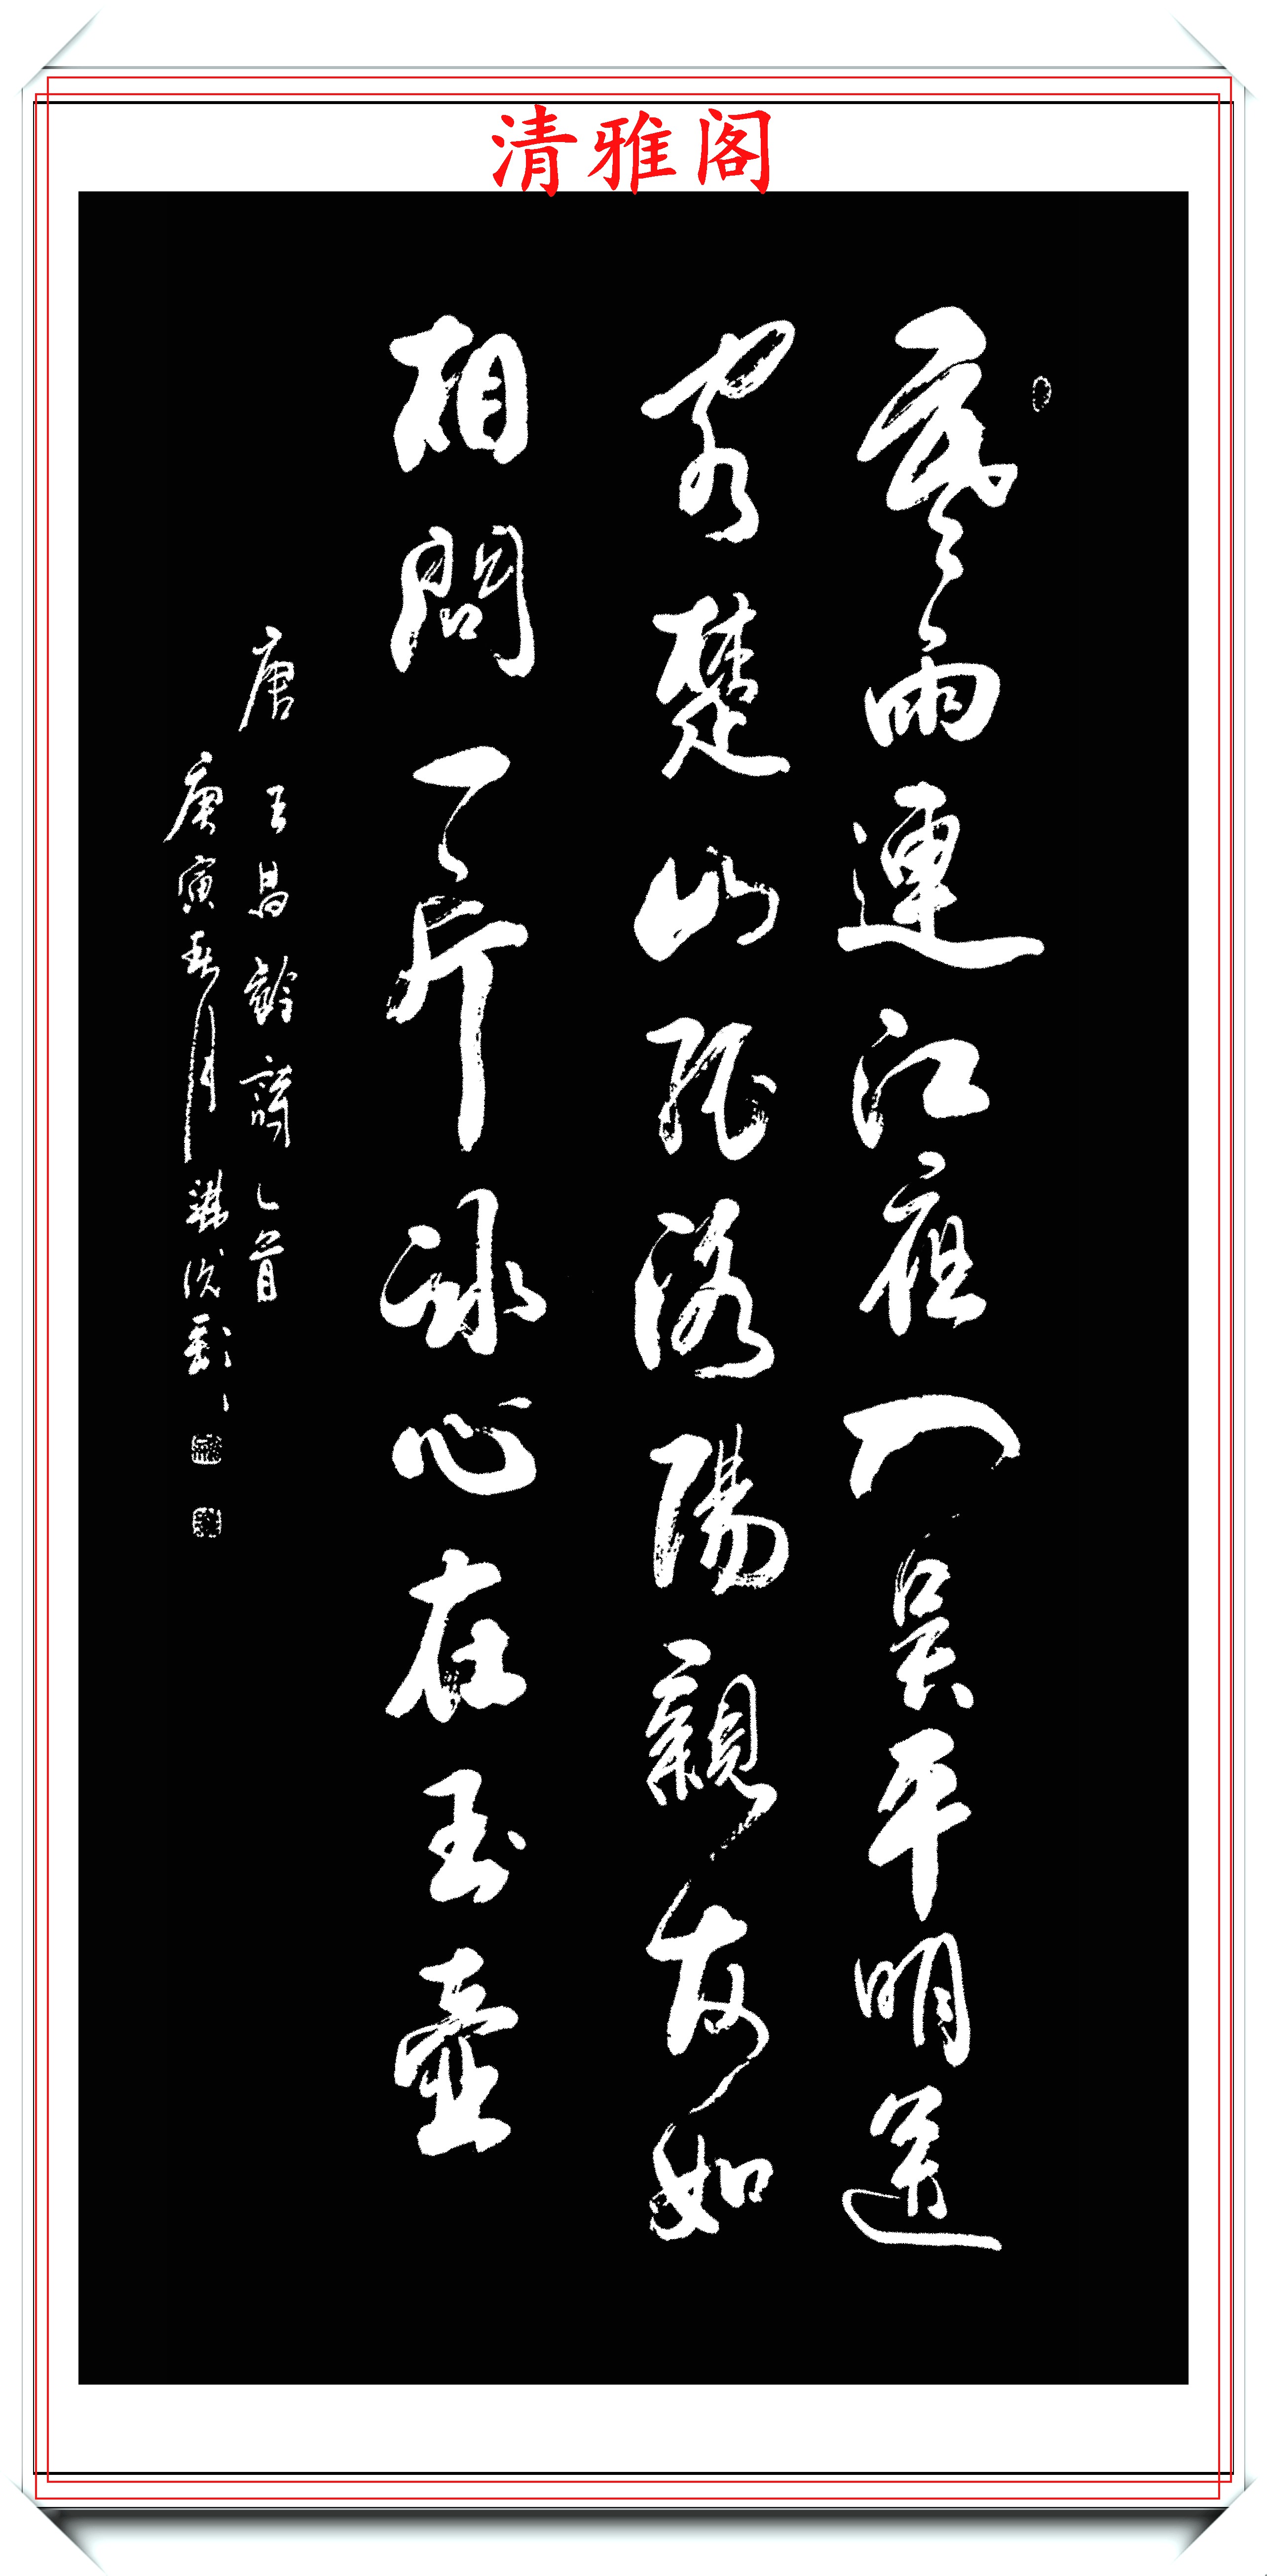 清雅阁
寒雨連江夜入吳平明送
客楚山孤洛陽親友如
相問一片冰心在玉壺
唐王昌齡詩乙首
庚寅春月